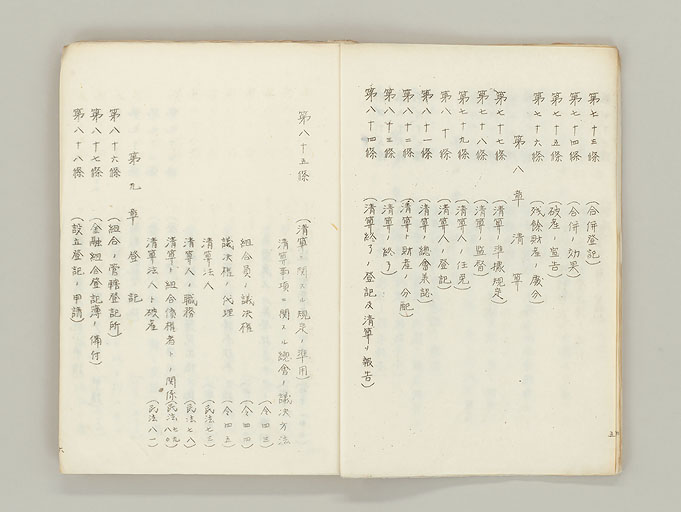 第七十三條 (合併登記)
第七十四條 (合併ノ効果)
第七十五條 (破産ノ宣告)
第七十六條 (残餘財産ノ處分)
第八章 清算
第七十七條 (清算ノ準據規定)
第七十八條 (清算ノ監督)
第七十九條 (清算人ノ任免)
第八十條 (清算人ノ登記)
第八十一條 (清算ノ總會承認)
第八十二條 (清算ノ財産ノ分配)
第八十三條 (清算ノ終了)
第八十四條 (清算終了ノ登記及清算ノ報告)
五
第八十五條 (清算ニ関スル規定ノ準用)
清算事項ニ関スル總會ノ議決方法 (令四三)
組合員ノ議決權 (令四四)
議決權ノ代理 (令四五)
清算法人 (民法七三)
清算人ノ職務 (民法七八)
清算ノ組合債權者トノ関係 (民法七九 八〇)
清算法人ト破産 (民法八一)
第九章 登記
第八十六條 (組合ノ管轄登記所)
第八十七條 (金融組合登記簿ノ備付)
第八十八條 (設立登記ノ申請)
六